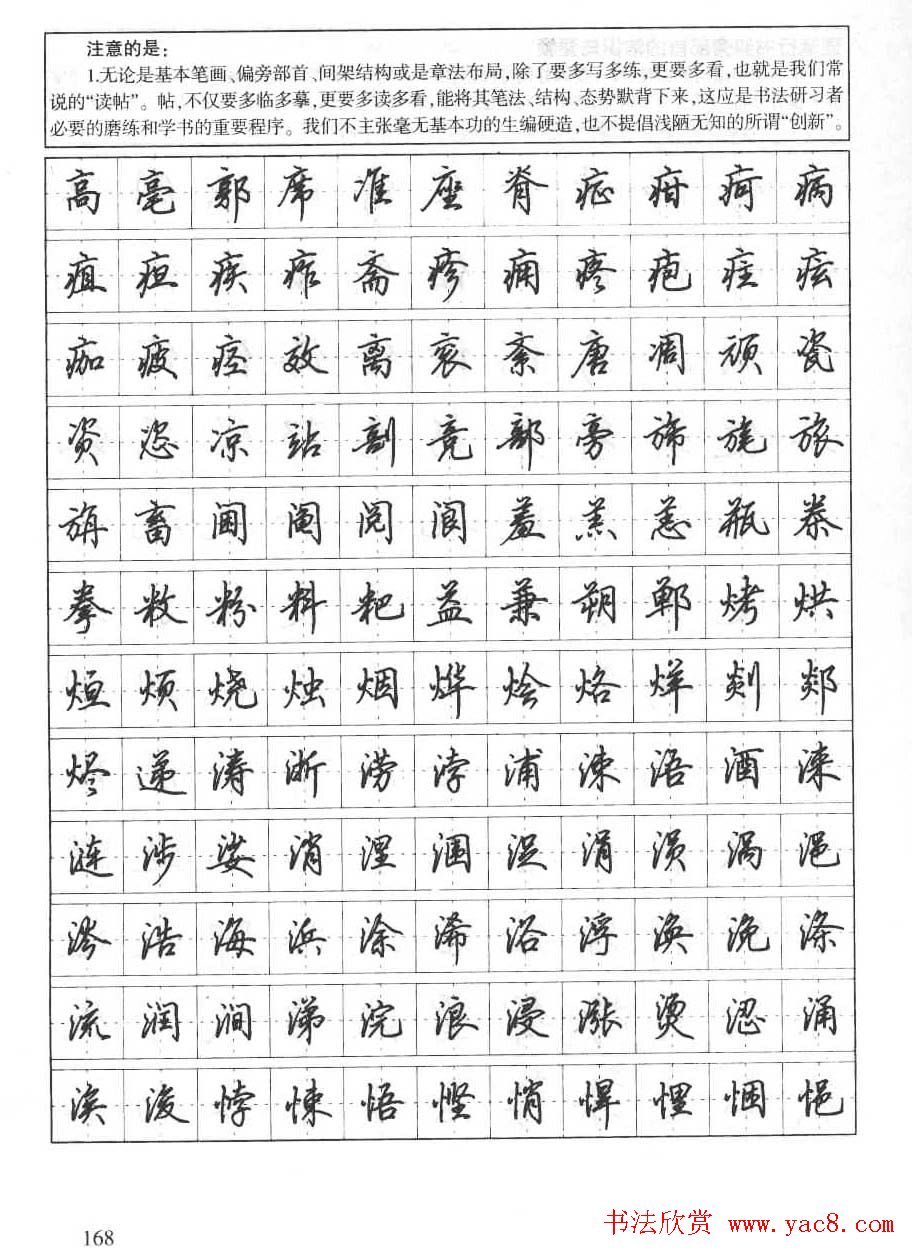 注意的是：
1.无论是基本笔画、偏旁部首、间架结构或是章法布局，除了要多写多练，更要多看，也就是我们常
说的“读帖”。帖，不仅要多临多摹，更要多读多看，能将其笔法、结构、态势默背下来，这应是书法研习者
必要的磨练和学书的重要程序。我们不主张毫无基本功的生编硬造，也不提倡浅陋无知的所谓“创新”。
高 亳 郭 席 准 座 脊 症 疳 疴 病
疽 疸 疾 痄 斋 疹 痈 疼 疱 疰 痃
痂 疲 痉 效 离 衮 紊 唐 凋 颃 瓷
资 恣 凉 站 剖 竞 部 旁 旆 旄 旅
旃 畜 阃 阄 阅 阆 羞 羔 恙 瓶 桊
拳 敉 粉 料 粑 益 兼 朔 郸 烤 烘
烜 烦 烧 烛 烟 烨 烩 烙 烊 剡 郯
烬 递 涛 浙 涝 浡 浦 涑 浯 酒 涞
涟 涉 娑 消 涅 涠 浞 涓 涢 涡 浥
涔 浩 海 浜 涂 浠 浴 浮 涣 浼 涤
流 润 涧 涕 浣 浪 浸 涨 烫 涩 涌
涘 浚 悖 悚 悟 悭 悄 悍 悝 悃 悒
168
书法欣赏 www.yac8.com